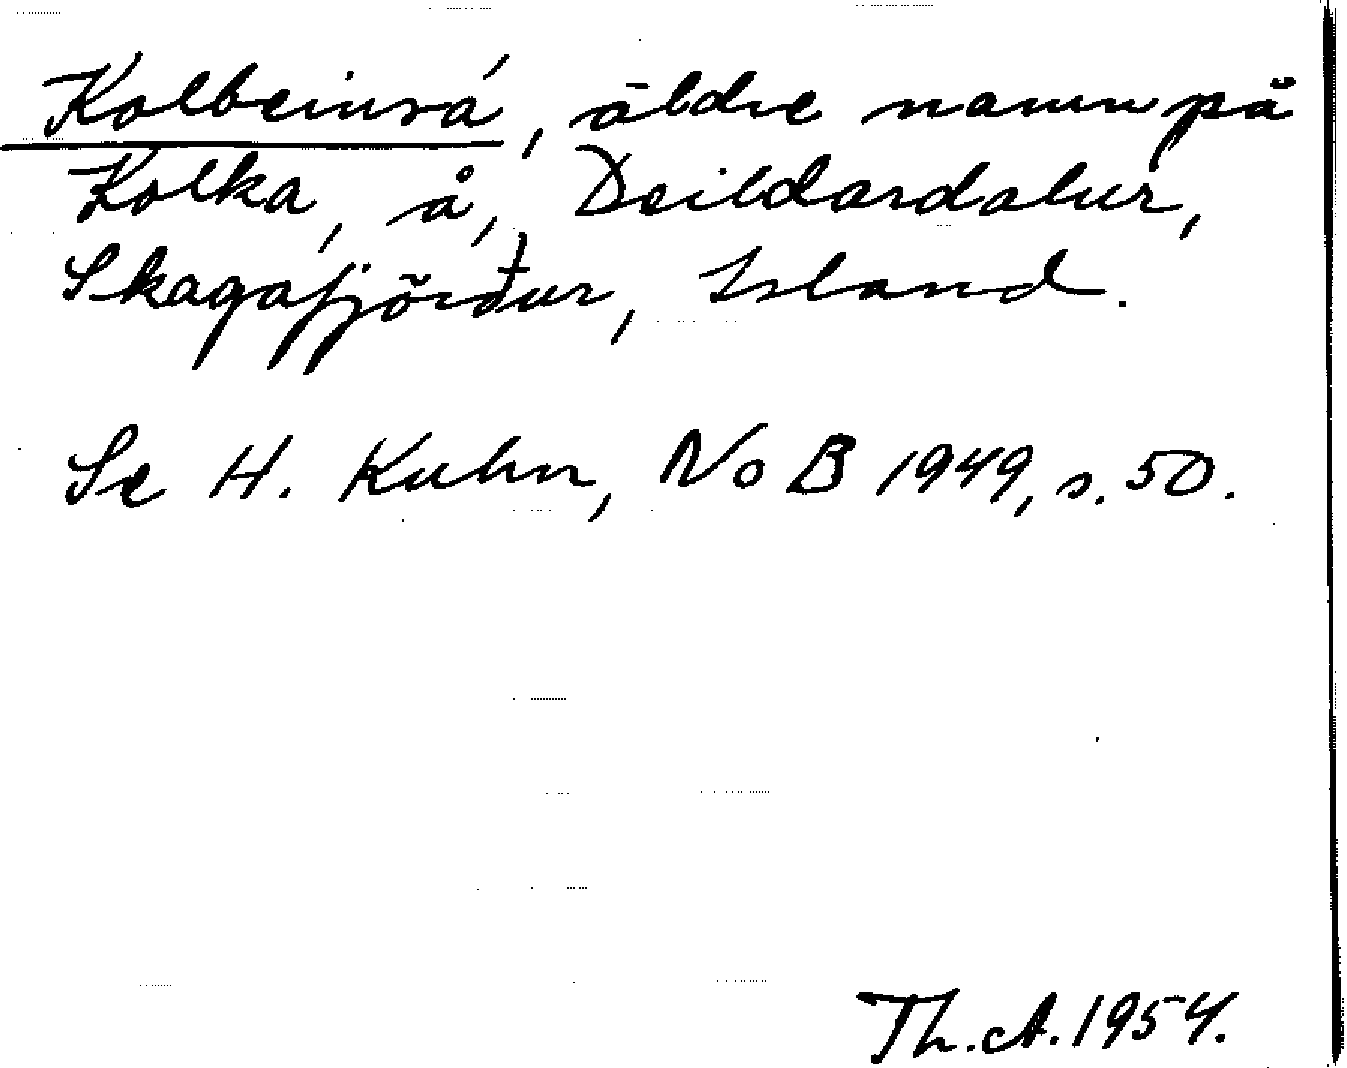 Kolbeinsá, äldre namn på
Kolka, å, Deildardalur,
Skagafjörður, Island.
Se H. Kuhn, NoB 1949, s. 50.
Th. A. 1954.